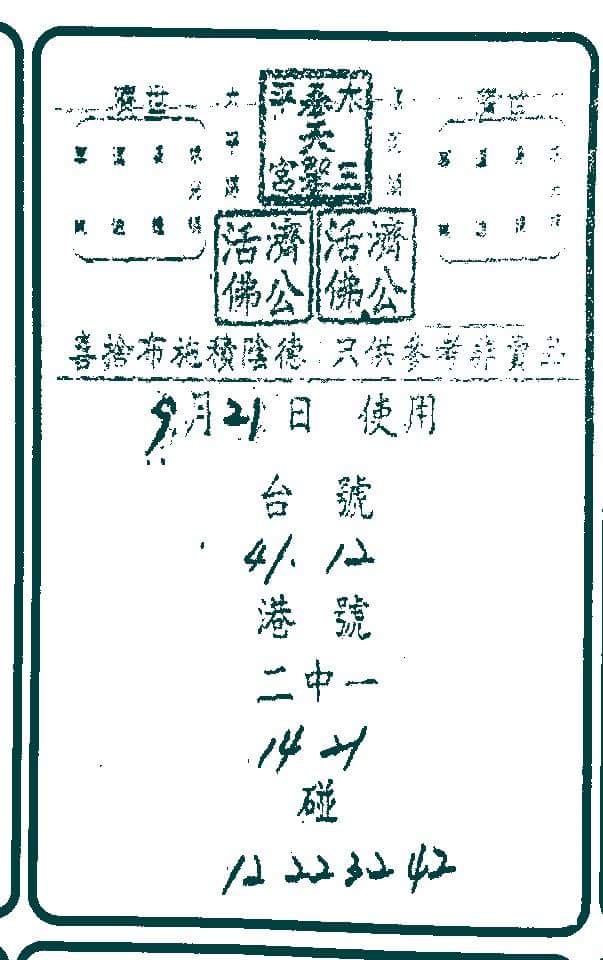 濟世
木 參 平
天
三 聖 宮
濟世
濟公
活佛
濟公
活佛
喜捨布施積陰德 只供參考非賣品
9月21日 使用
台 號
41. 12
港 號
二中一
14 21
碰
12 22 32 42